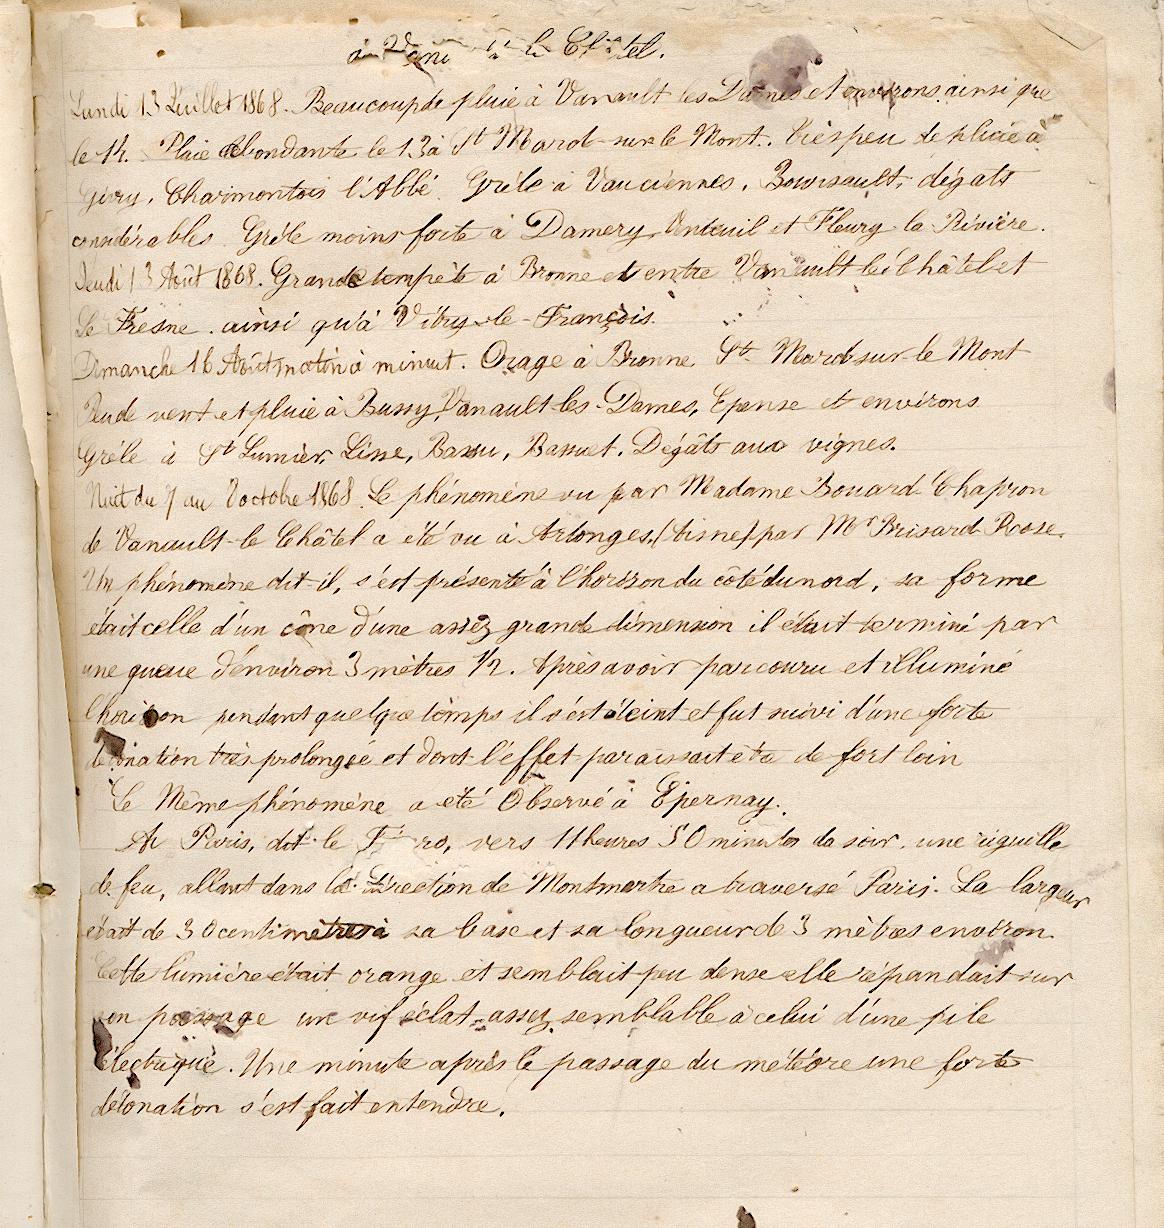 à Van le Châtel.
Lundi 13 Juillet 1868. Beaucoup de pluie à Vanault les Dames et environs. ainsi que
le 14. Pluie abondante le 13 à St Mard-sur-le Mont. Très peu de pluie à
Givry, Charmontois l'Abbé. Grêle à Vauciennes, Boursault, dégats
considérables. Grêle moins forte à Damery, Venteuil et Fleury la Rivière.
Jeudi 13 Août 1868. Grande tempête à Bronne et entre Vanault-le-Châtel et
Le Fresne. ainsi qu'à Vitry-le-François.
Dimanche 16 Août matin à minuit. Orage à Bronne, St Mard-sur-le Mont
Peu de vent et pluie à Bussy, Vanault-les-Dames, Epense et environs
Grêle à St Lumier, Lisse, Bassu, Bassuet. Dégâts aux vignes.
Nuit du 7 au 8 octobre 1868. Le phénomène vu par Madame Bouard-Chapron
de Vanault-le Châtel a été vu à Artonges, (Aisne) par Mr Brisard-Roose.
Un phénomène dit-il, s'est présenté à l'horizon du côté du nord, sa forme
était celle d'un cône d'une assez grande dimension il était terminé par
une queue d'environ 3 mètres 1/2. Après avoir parcouru et illuminé
l'horizon pendant quelque temps il s'est éteint et fut suivi d'une forte
détonation très prolongée et dont l'effet paraissait être de fort loin
Le Même phénomène a été Observé à Epernay.
A Paris, dit le F ro, vers 11 heures 50 minutes du soir, une aiguille
de feu, allant dans la direction de Montmartre a traversé Paris. La largeur
était de 30 centimètres à sa base et sa longueur de 3 mètres environ.
Cette lumière était orange et semblait peu dense elle répandait sur
son passage un vif éclat, assez semblable à celui d'une pile
électrique. Une minute après le passage du météore une forte
détonation s'est fait entendre.